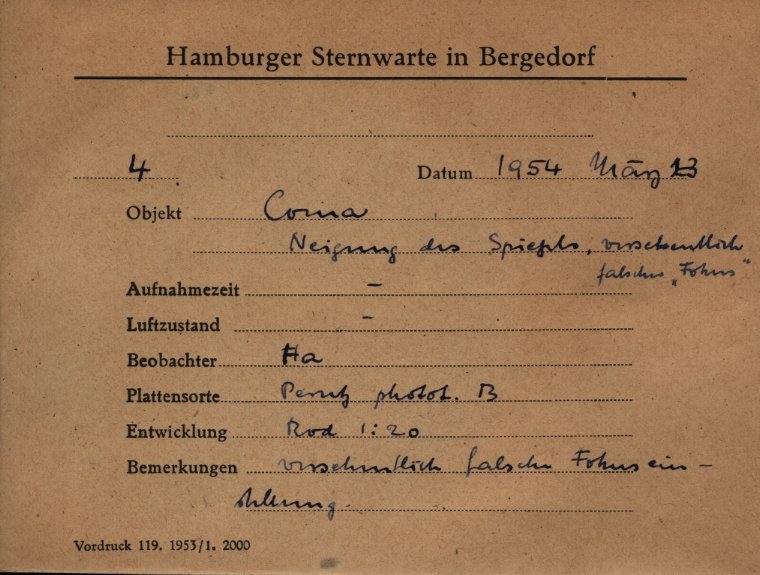 Hamburger Sternwarte in Bergedorf
4 Datum 1954 März 23
Objekt Coma
Neigung des Spiegels, versehentlich
falscher „Fokus“
Aufnahmezeit –
Luftzustand –
Beobachter Ha
Plattensorte Perutz photot. B
Entwicklung Rod 1:20
Bemerkungen versehentlich falsche Fokusein–
stellung.
Vordruck 119. 1953/1. 2000